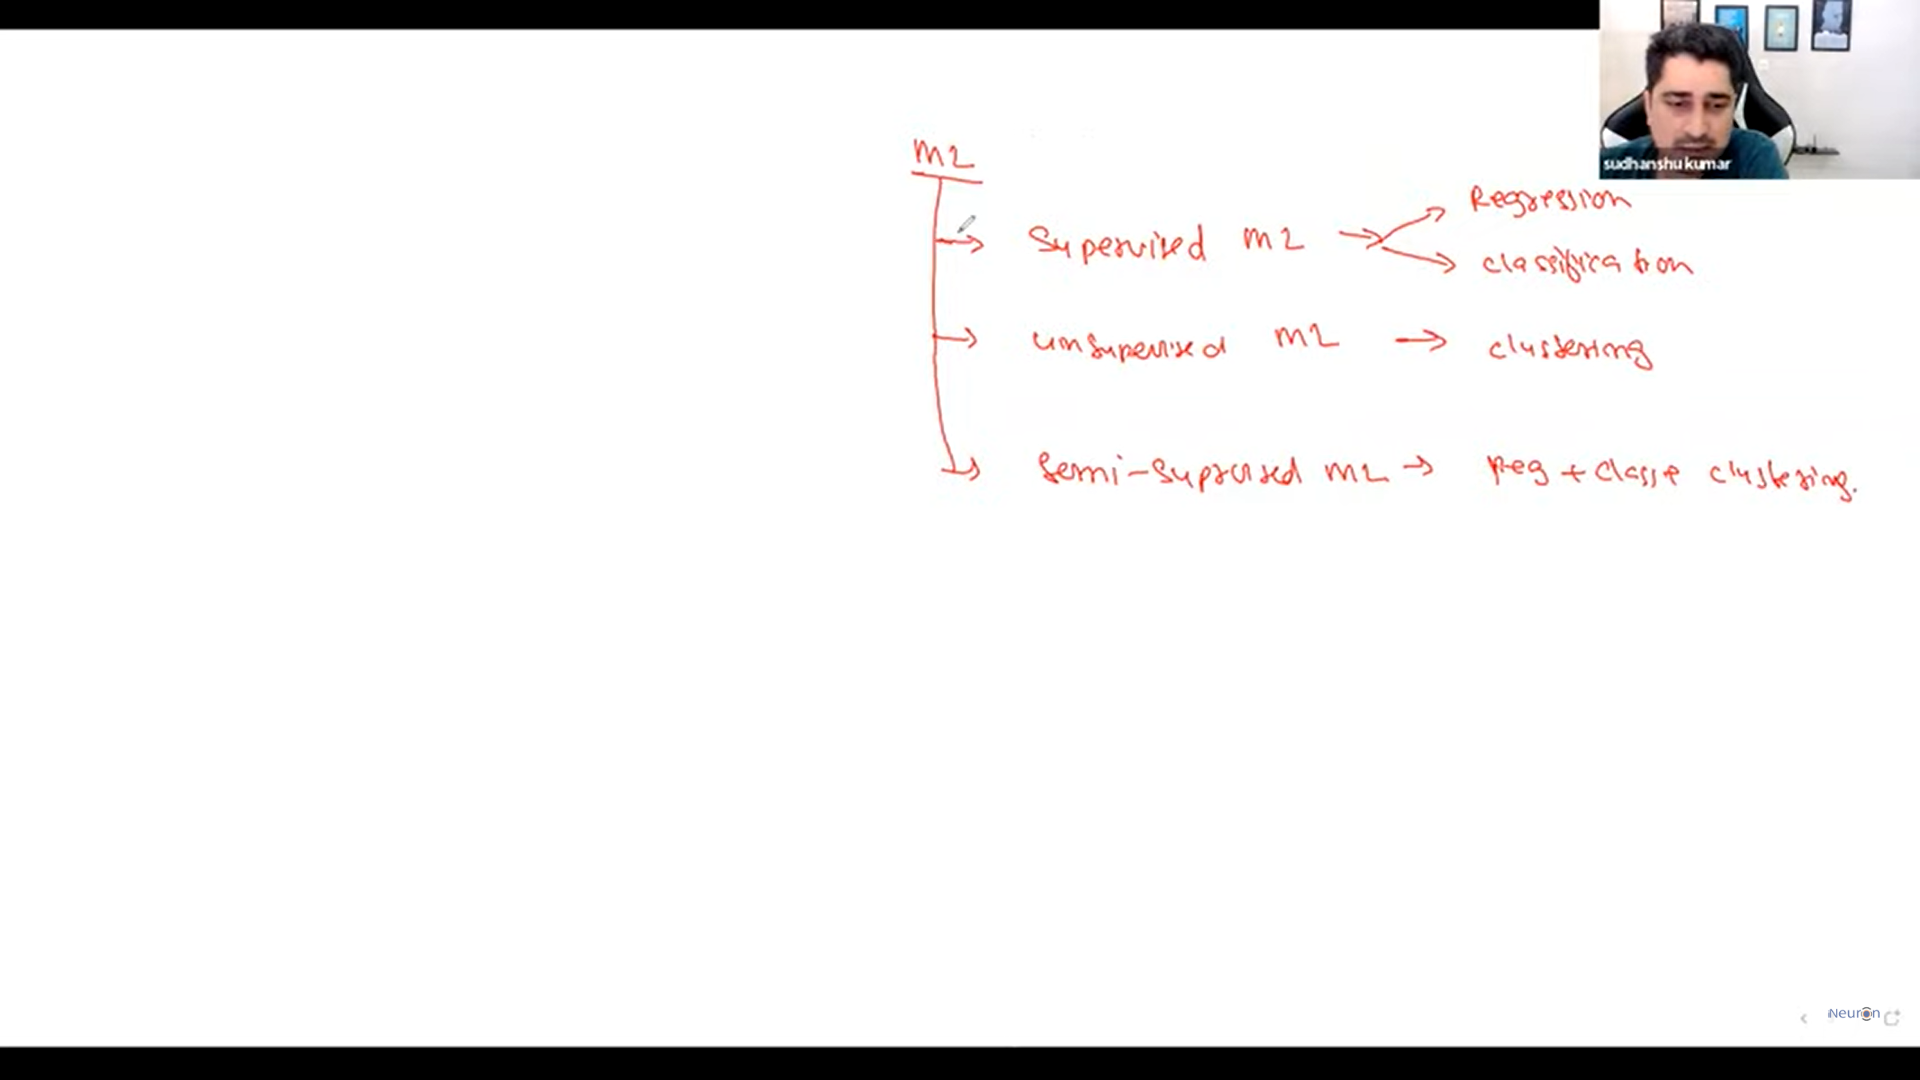 ML
sudhanshu kumar
Supervised ML → Regression
classification
unsupervised ML → clustering
Semi-Supervised ML → Reg + Class + clustering.
iNeuron